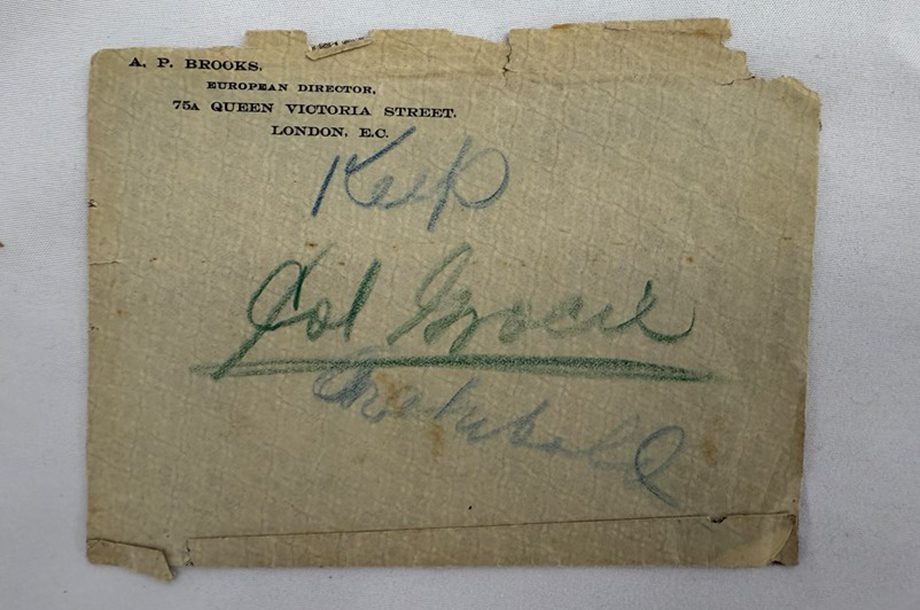 A. P. BROOKS,
EUROPEAN DIRECTOR,
75A QUEEN VICTORIA STREET.
LONDON, E.C.
Keep
Col Gracie
Archibald